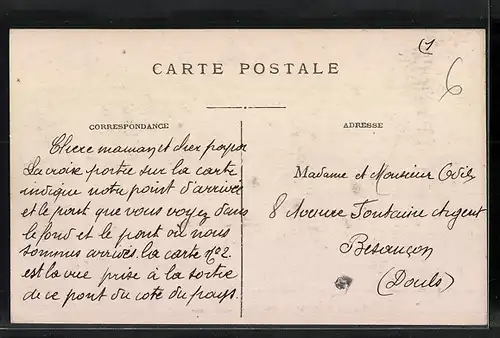 CARTE POSTALE
CORRESPONDANCE
Chère maman et cher papa
La croix portée sur la carte
indique notre point d'arrivée
et le pont que vous voyez dans
le fond et le pont où nous
sommes arrivés. la carte n°2.
est la vue prise à la sortie
de ce pont du coté du pays.
ADRESSE
Madame et Monsieur
8 Avenue Fontaine Argent
Besançon
(Doubs)
6